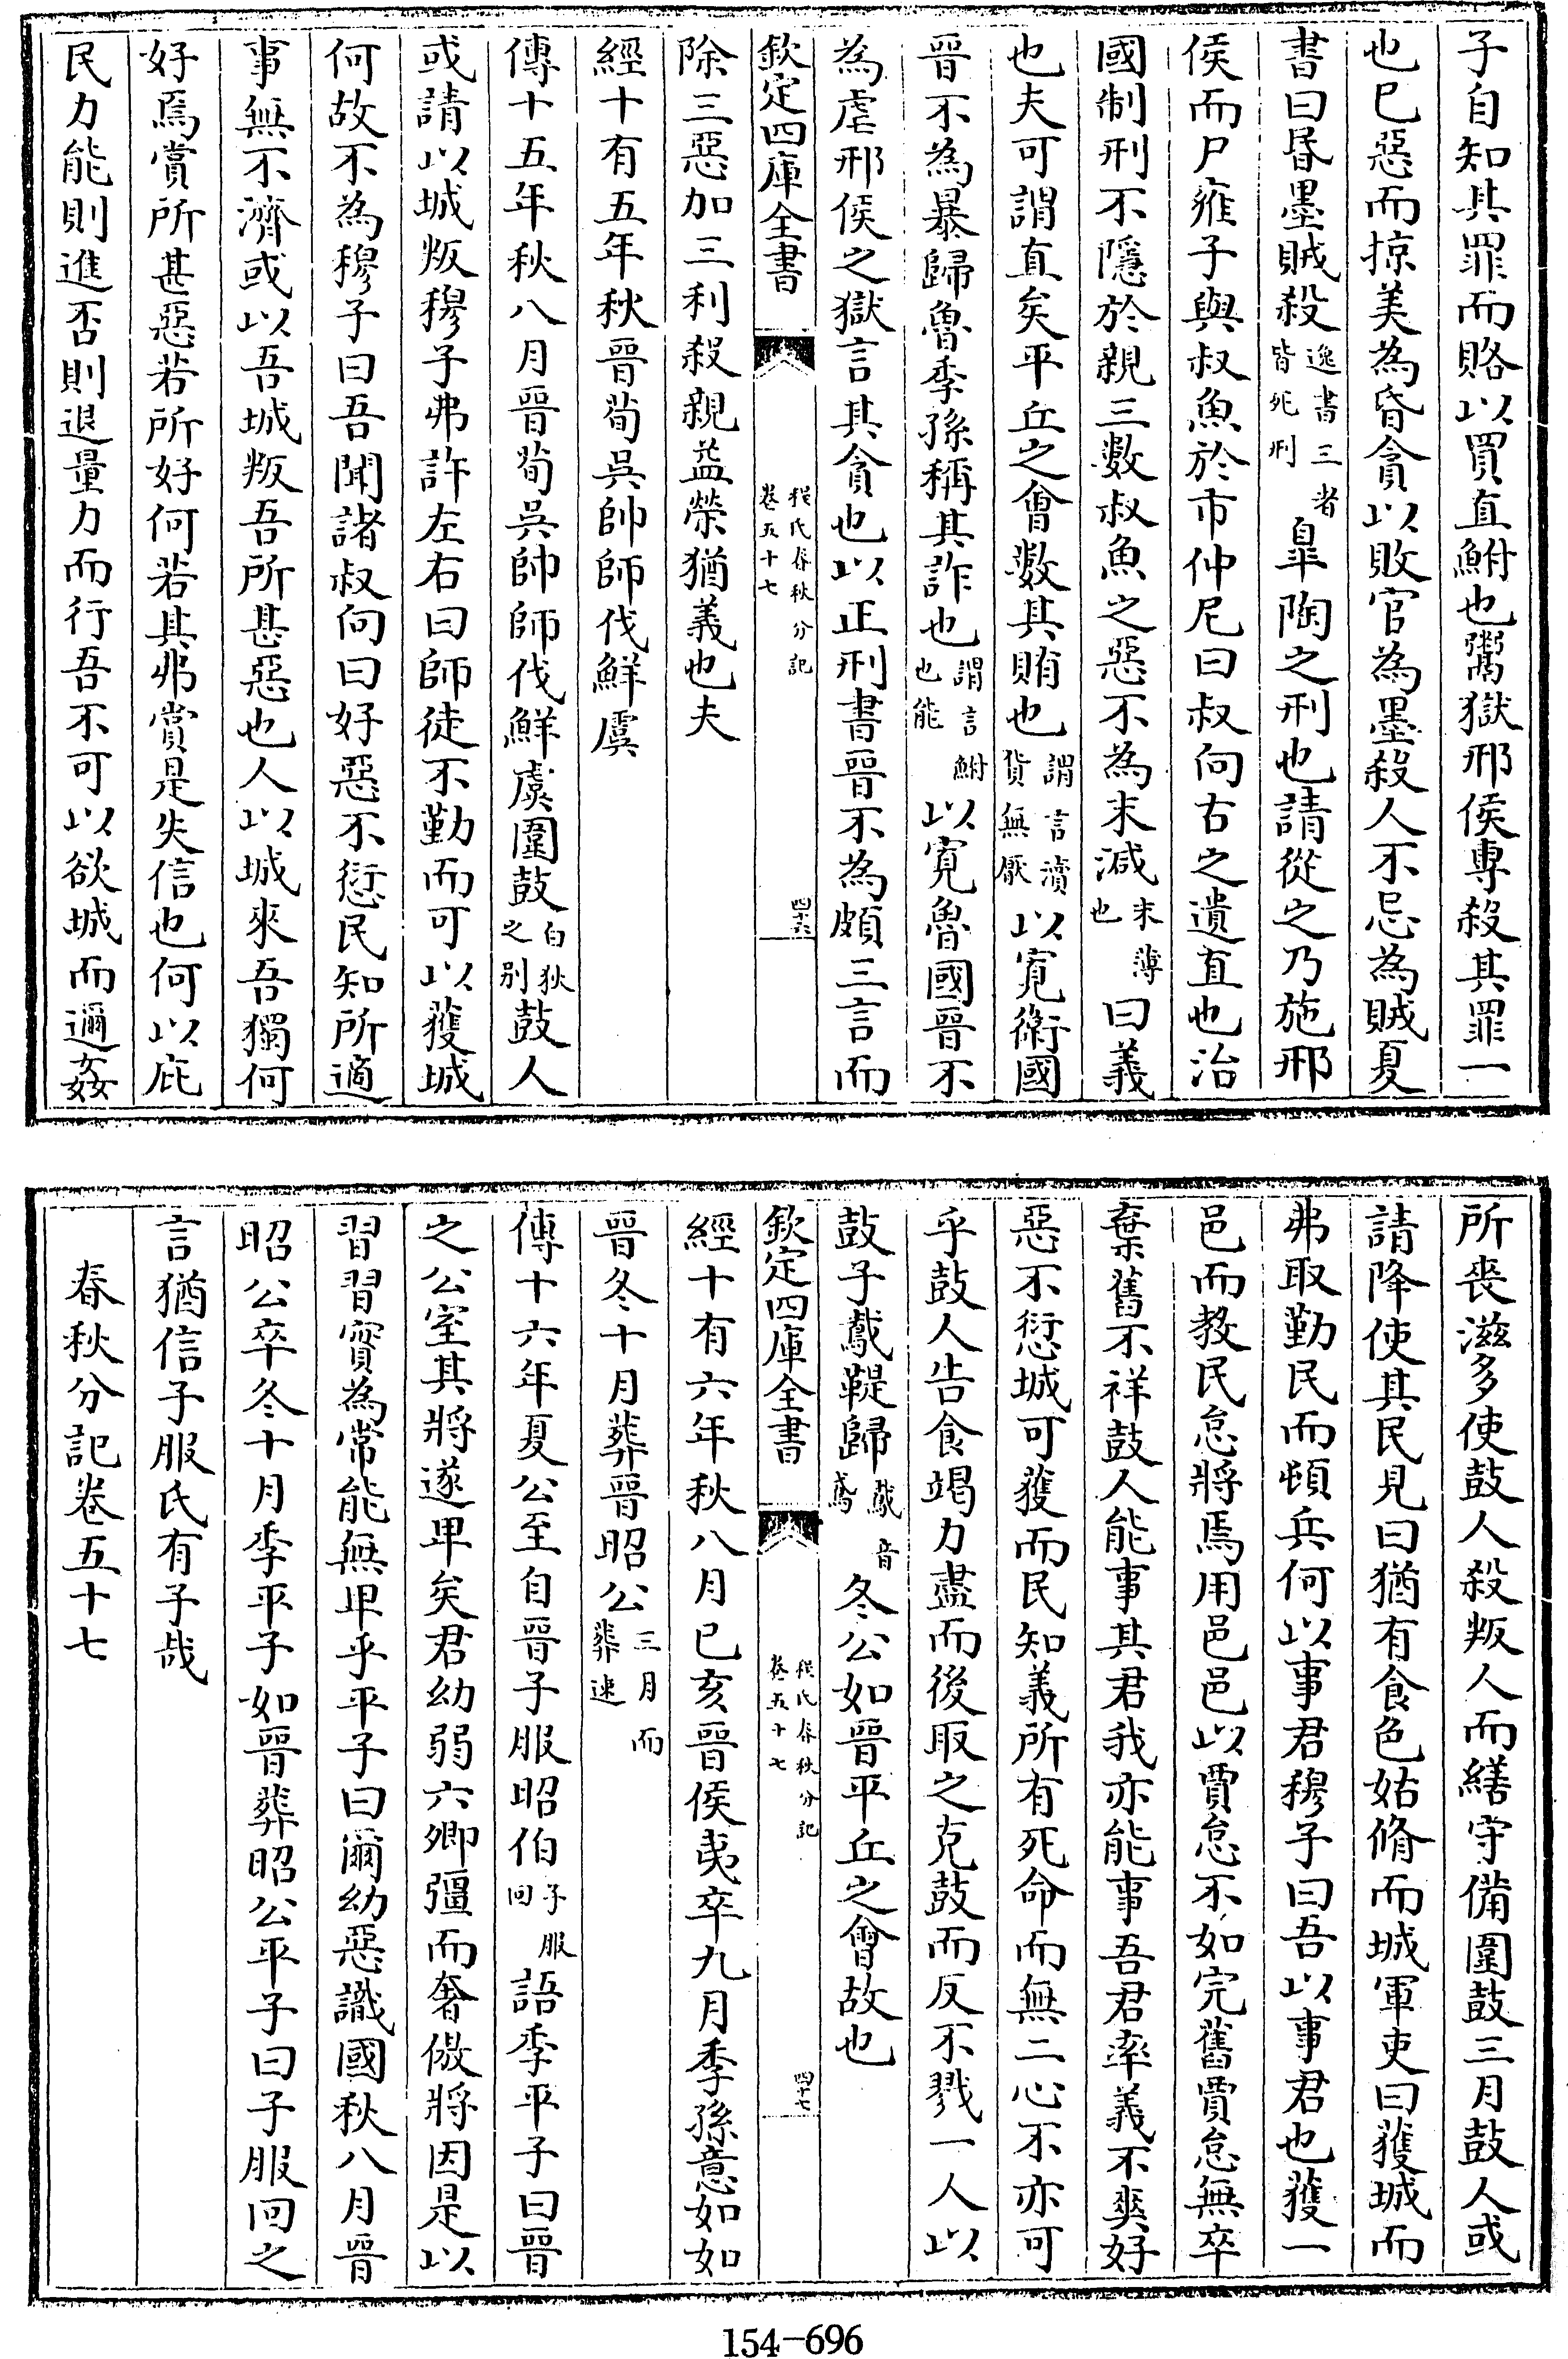 子自知其罪而賂以買直鮒也鬻獄邢侯專殺其罪一
也已惡而掠美為昏貪以敗官為墨殺人不忌為賊夏
書曰昏墨賊殺逸書三者皆死刑臯陶之刑也請從之乃施邢
侯而尸雍子與叔魚於市仲尼曰叔向古之遺直也治
國制刑不隱於親三數叔魚之惡不為末減末薄也曰義
也夫可謂直矣平丘之會數其賄也謂言瀆貨無厭以寛衛國
晉不為暴歸魯季孫稱其詐也謂言鮒也能以寛魯國晉不
為虐邢侯之獄言其貪也以正刑書晉不為頗三言而
欽定四庫全書
程氏春秋分記
卷五十七
四十六
除三惡加三利殺親益榮猶義也夫
經十有五年秋晉荀吳帥師伐鮮虞
傳十五年秋八月晉荀吳帥師伐鮮虞圍鼓白狄之别鼓人
或請以城叛穆子弗許左右曰師徒不勤而可以獲城
何故不為穆子曰吾聞諸叔向曰好惡不愆民知所適
事無不濟或以吾城叛吾所甚惡也人以城來吾獨何
好焉賞所甚惡若所好何若其弗賞是失信也何以庇
民力能則進否則退量力而行吾不可以欲城而邇姦
所喪滋多使鼓人殺叛人而繕守備圍鼓三月鼓人或
請降使其民見曰猶有食色姑脩而城軍吏曰獲城而
弗取勤民而頓兵何以事君穆子曰吾以事君也獲一
邑而教民怠將焉用邑邑以賈怠不如完舊賈怠無卒
棄舊不祥鼓人能事其君我亦能事吾君率義不爽好
惡不愆城可獲而民知義所有死命而無二心不亦可
乎鼓人告食竭力盡而後取之克鼓而反不戮一人以
鼓子䳒鞮歸䳒音鳶冬公如晉平丘之會故也
欽定四庫全書
程氏春秋分記
卷五十七
四十七
經十有六年秋八月己亥晉侯夷卒九月季孫意如如
晉冬十月葬晉昭公三月而葬速
傳十六年夏公至自晉子服昭伯子服回語季平子曰晉
之公室其將遂卑矣君幼弱六卿彊而奢傲將因是以
習習實為常能無卑乎平子曰爾幼惡識國秋八月晉
昭公卒冬十月季平子如晉葬昭公平子曰子服回之
言猶信子服氏有子哉
春秋分記卷五十七
154-696